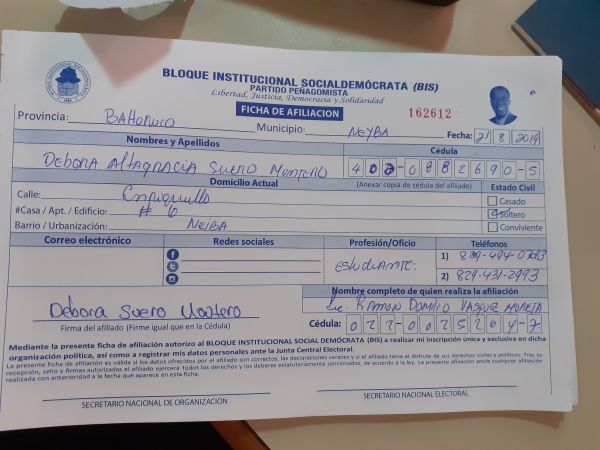 BLOQUE INSTITUCIONAL SOCIALDEMÓCRATA (BIS)
PARTIDO PEÑAGOMISTA
Libertad, Justicia, Democracia y Solidaridad
FICHA DE AFILIACION
162612
Provincia: BAHORUCO Municipio: NEYBA Fecha: 21/8/2019
Nombres y Apellidos Cédula
DEBORA Altagracia Suero Montero
Domicilio Actual (Anexar copia de cédula del afiliado) Estado Civil
Calle: Casado
#Casa / Apt. / Edificio: # 6 Soltero
Barrio / Urbanización: NEIBA Conviviente
Correo electrónico Redes sociales Profesión/Oficio Teléfonos
ESTUDIANTE: 1)
2) 829-431-2993
Nombre completo de quien realiza la afiliación
Debora Suero Lic. RAMON DOMILIO VASQUEZ MORETA
Firma del afiliado (Firme igual que en la Cédula) Cédula:
Mediante la presente ficha de afiliación autorizo al BLOQUE INSTITUCIONAL SOCIAL DEMÓCRATA (BIS) a realizar mi inscripción única y exclusiva en dicha
organización política, así como a registrar mis datos personales ante la Junta Central Electoral.
La presente ficha de afiliación es válida si los datos ofrecidos por el afiliado son correctos, las declaraciones veraces y si el afiliado tiene el disfrute de sus derechos civiles y políticos. Tras su
recepción, sello y firmas autorizadas el afiliado ejercerá todos los derechos y los deberes estatutariamente sancionados, de acuerdo a la ley. La presente afiliación anula cualquier afiliación
realizada con anterioridad a la fecha que aparece en esta ficha.
SECRETARIO NACIONAL DE ORGANIZACIÓN SECRETARIO NACIONAL ELECTORAL